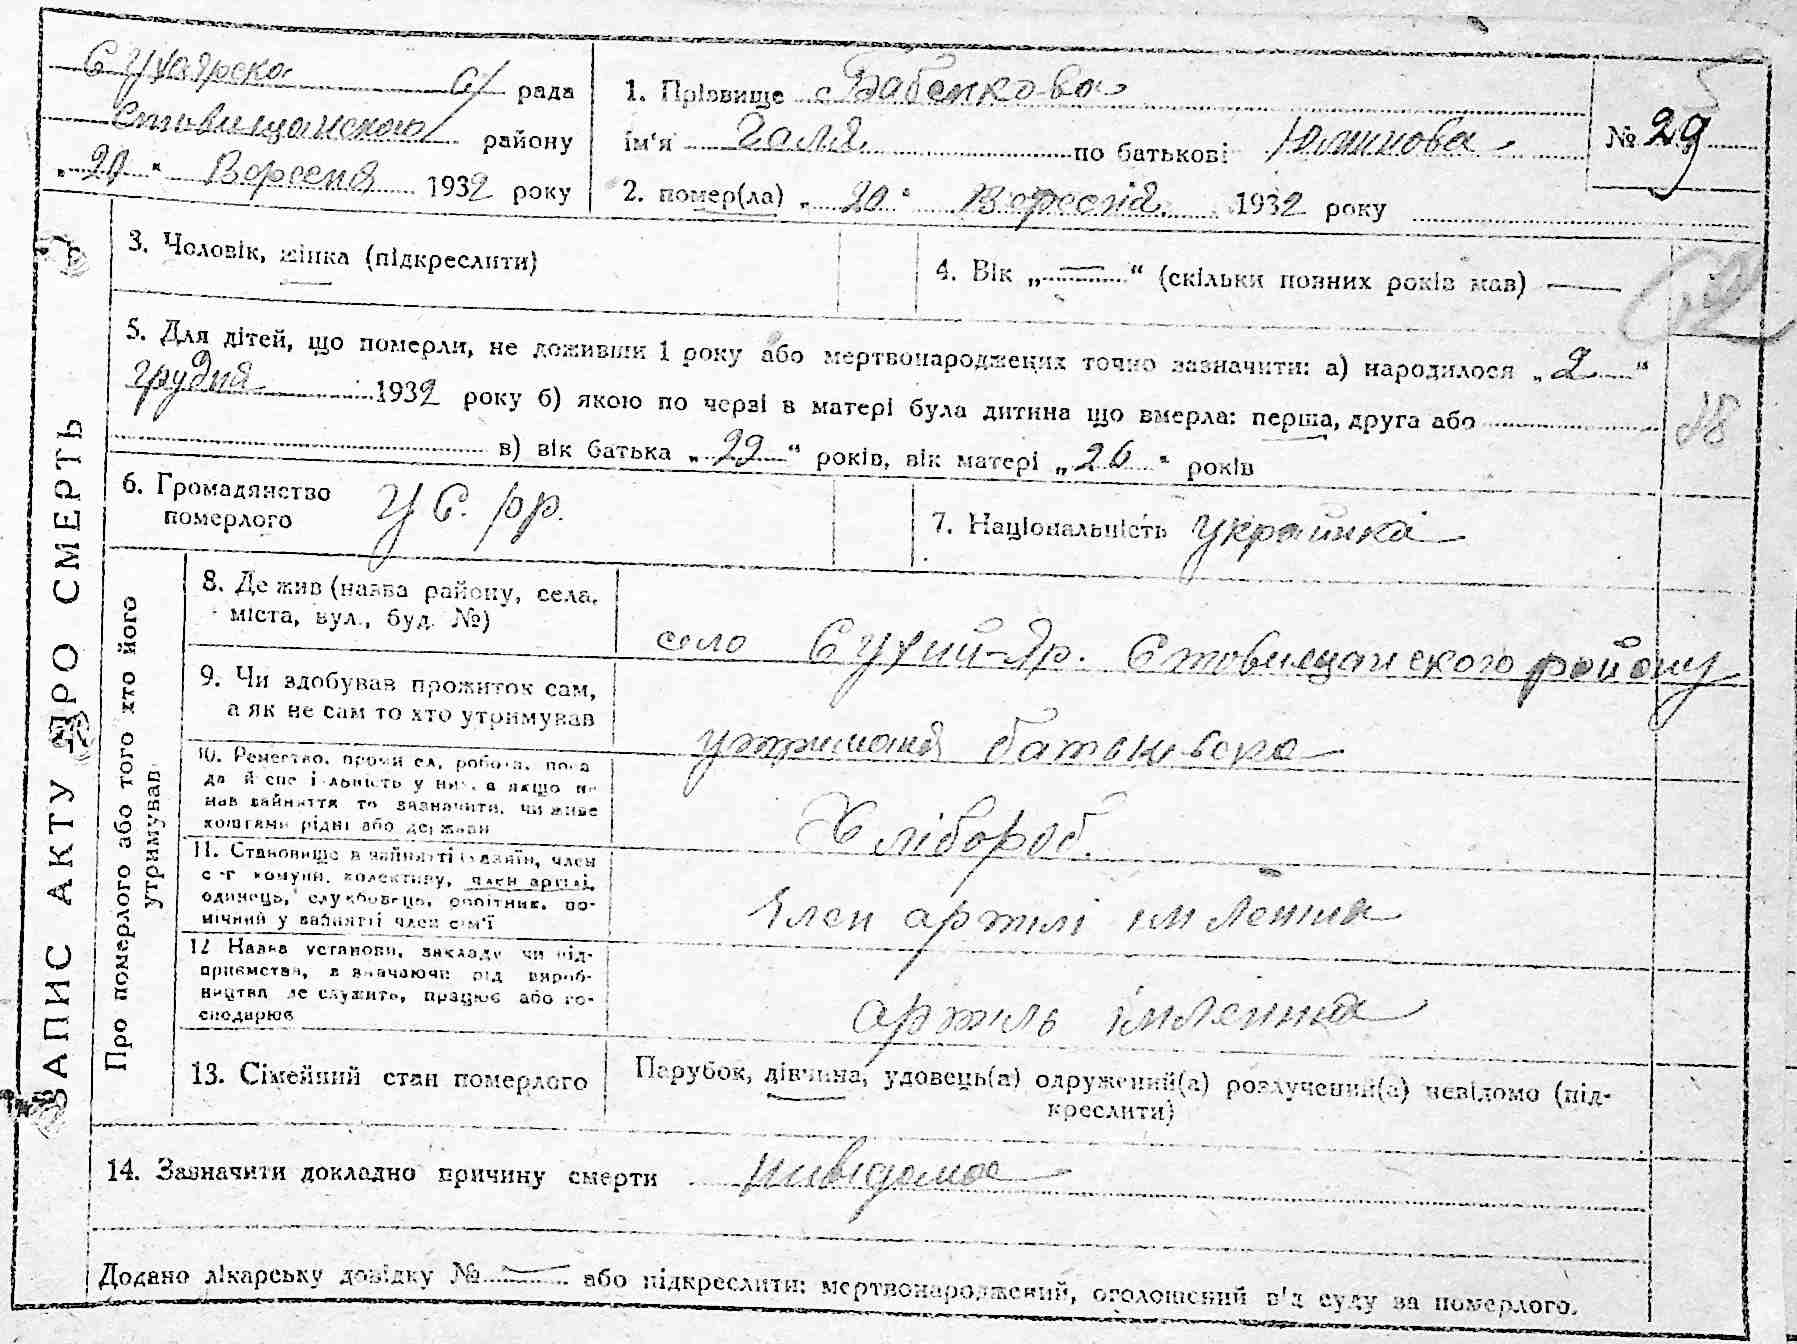 Сухоярска с/ рада
Стовищанского району
„20“ Вересня 1932 року
1. Прізвище Бабенкова
ім'я Галя по батькові
№ 29
2. помер(ла) „20“ Вересня 1932 року
3. Чоловік, жінка (підкреслити)
4. Вік „—“ (скільки повних років мав) —
5. Для дітей, що померли, не доживши 1 року або мертвонароджених точно зазначити: а) народилося „2“
грудня 1932 року б) якою по черзі в матері була дитина що вмерла: перша, друга або
18
в) вік батька „22“ років, вік матері „20“ років
6. Громадянство
померлого
У С. рр.
7. Національність українка
ЗАПИС АКТУ ПРО СМЕРТЬ
Про померлого або того хто його
утримував
8. Де жив (назва району, села,
міста, вул., буд. №)
село Сухий-Яр. Стовищанского району
9. Чи здобував прожиток сам,
а як не сам то хто утримував
утриманя батьковско
10. Ремество, промисел, робота, поса
да й спеціальність у них, а якщо не
мав зайняття то зазначити, чи живе
коштами рідні або держави
Хлібороб.
11. Становище в зайнятті (хазяїн, член
с-г комуни, колективу, член артілі,
одинець, службовець, робітник, по-
мічний у зайнятті член сім'ї
Член артілі ім Леніна
12 Назва установи, закладу чи під-
приємства, в значаючи від вироб-
ництва де служить, працює або го-
сподарює
артиль ім Леніна
13. Сімейний стан померлого
Парубок, дівчина, удовець(а) одружений(а) розлучений(а) невідомо (під-
креслити)
14. Зазначити докладно причину смерти нивідома
Додано лікарську довідку №— або підкреслити: мертвонароджений, оголошений від суду за померлого.